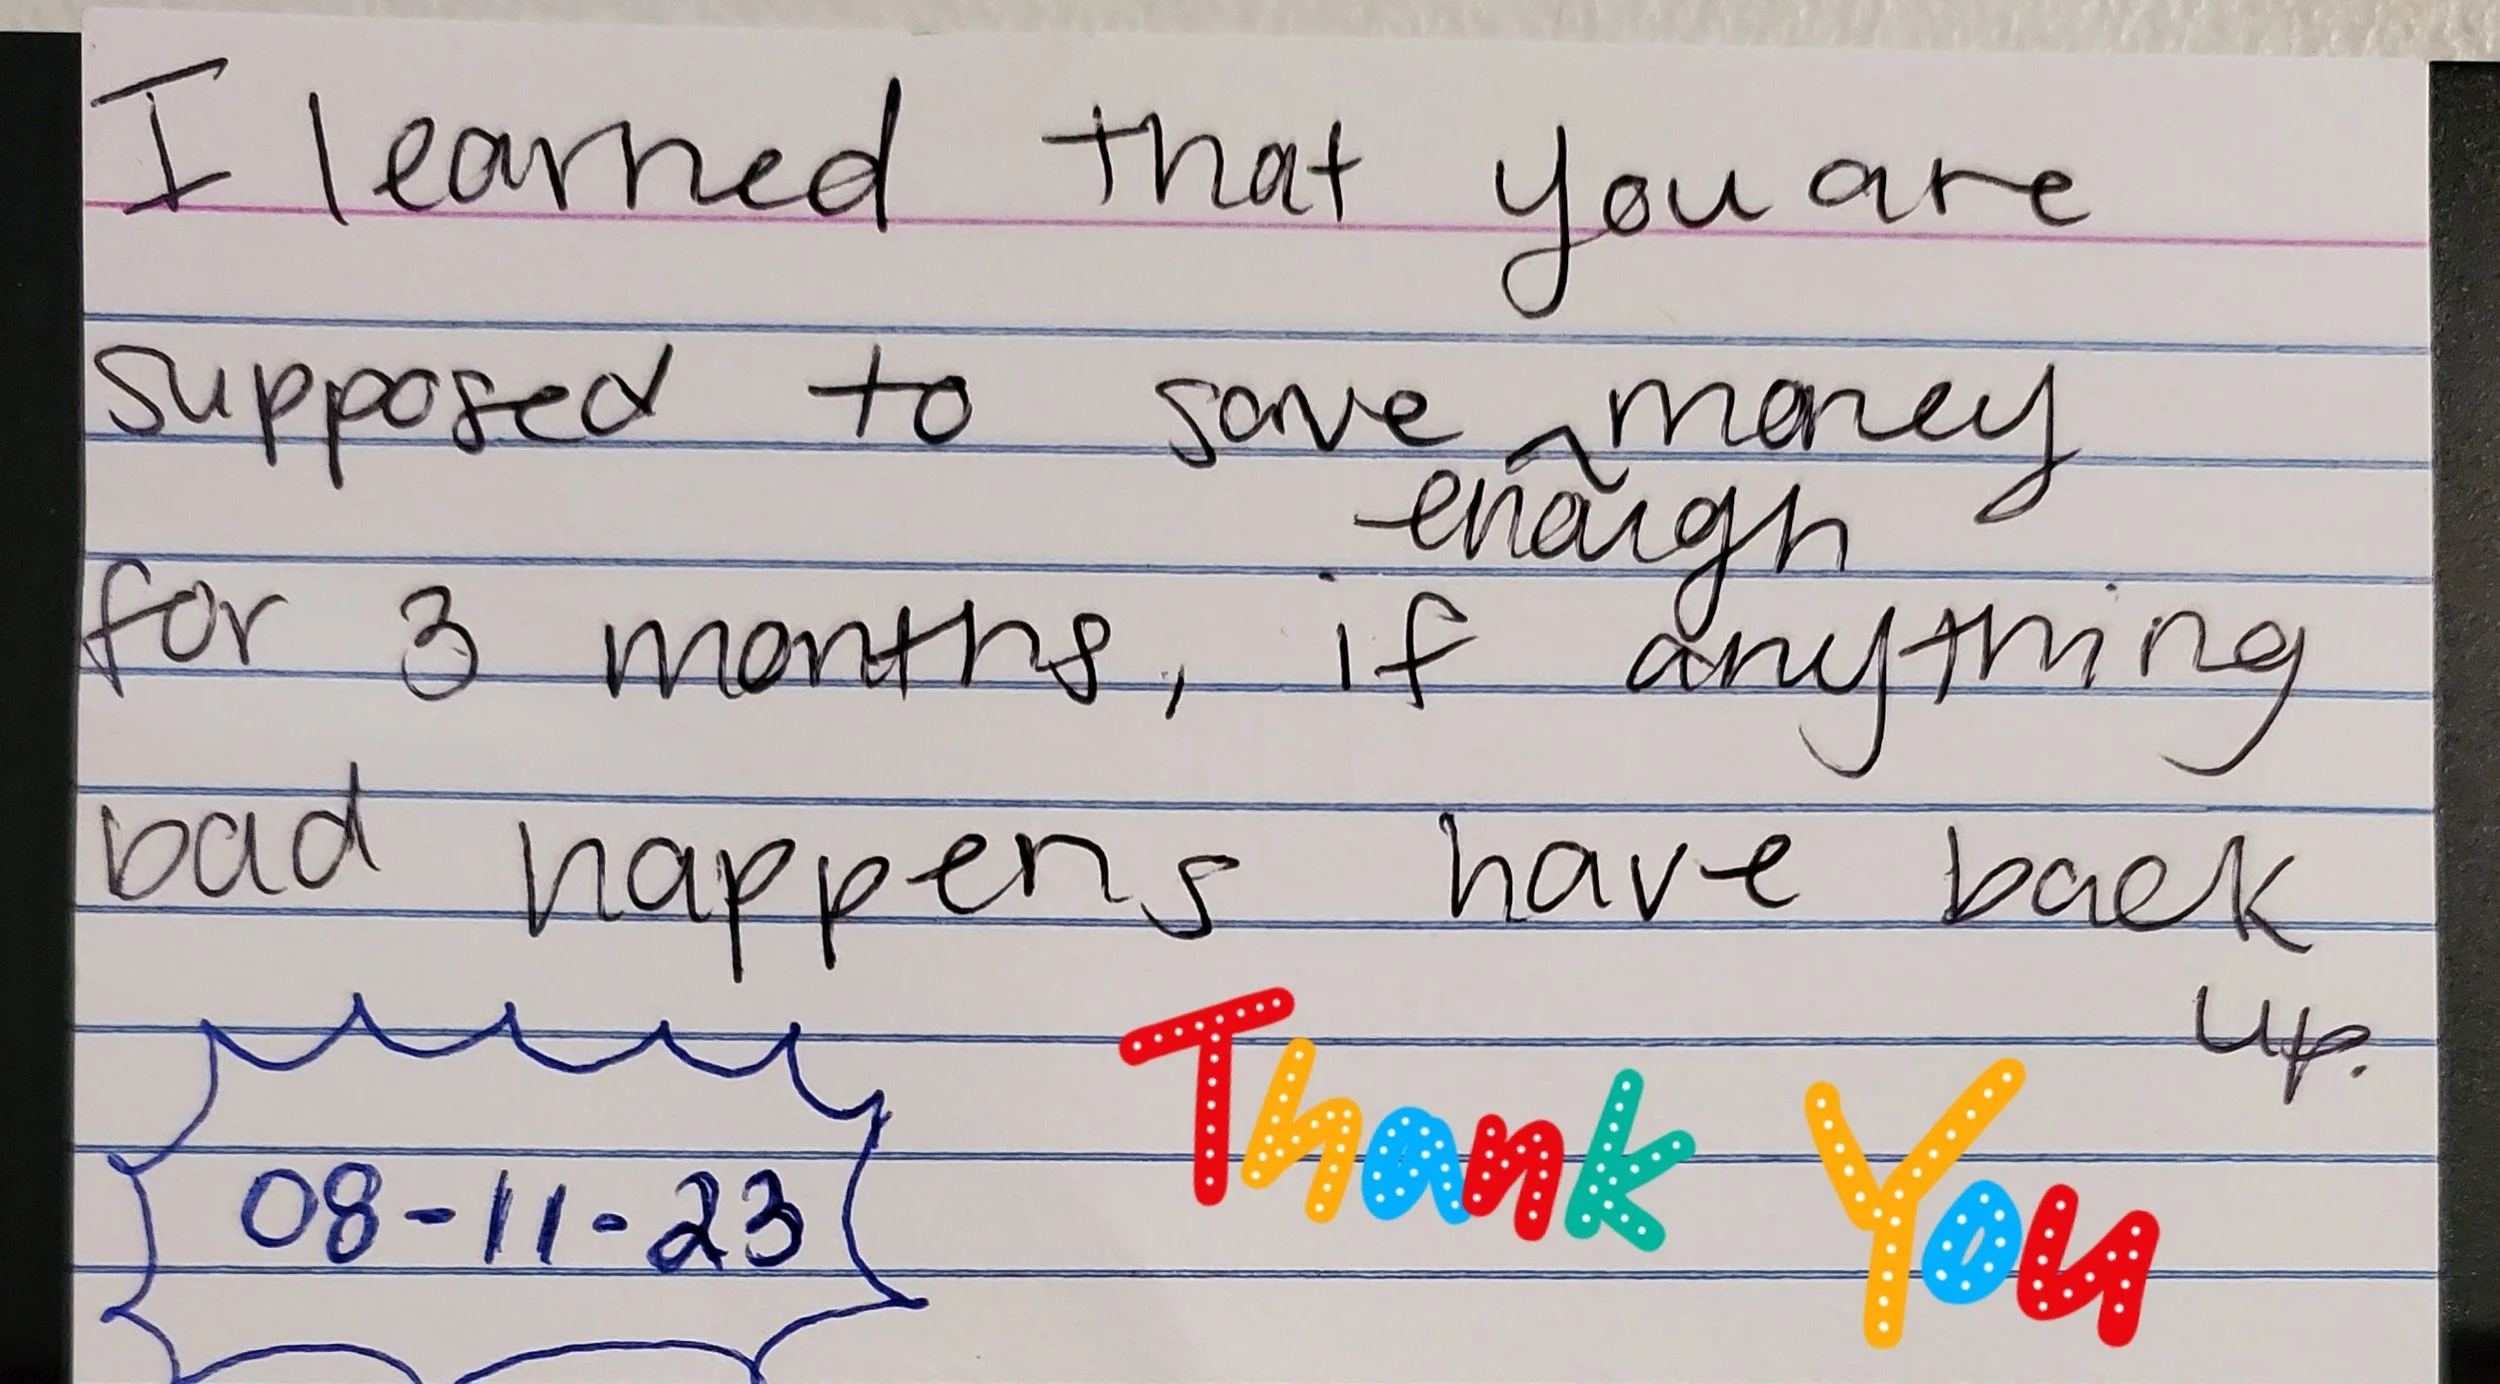 I learned that you are
supposed to save ^ money
enough
for 3 months, if anything
bad happens have back
up.
Thank You
08-11-23